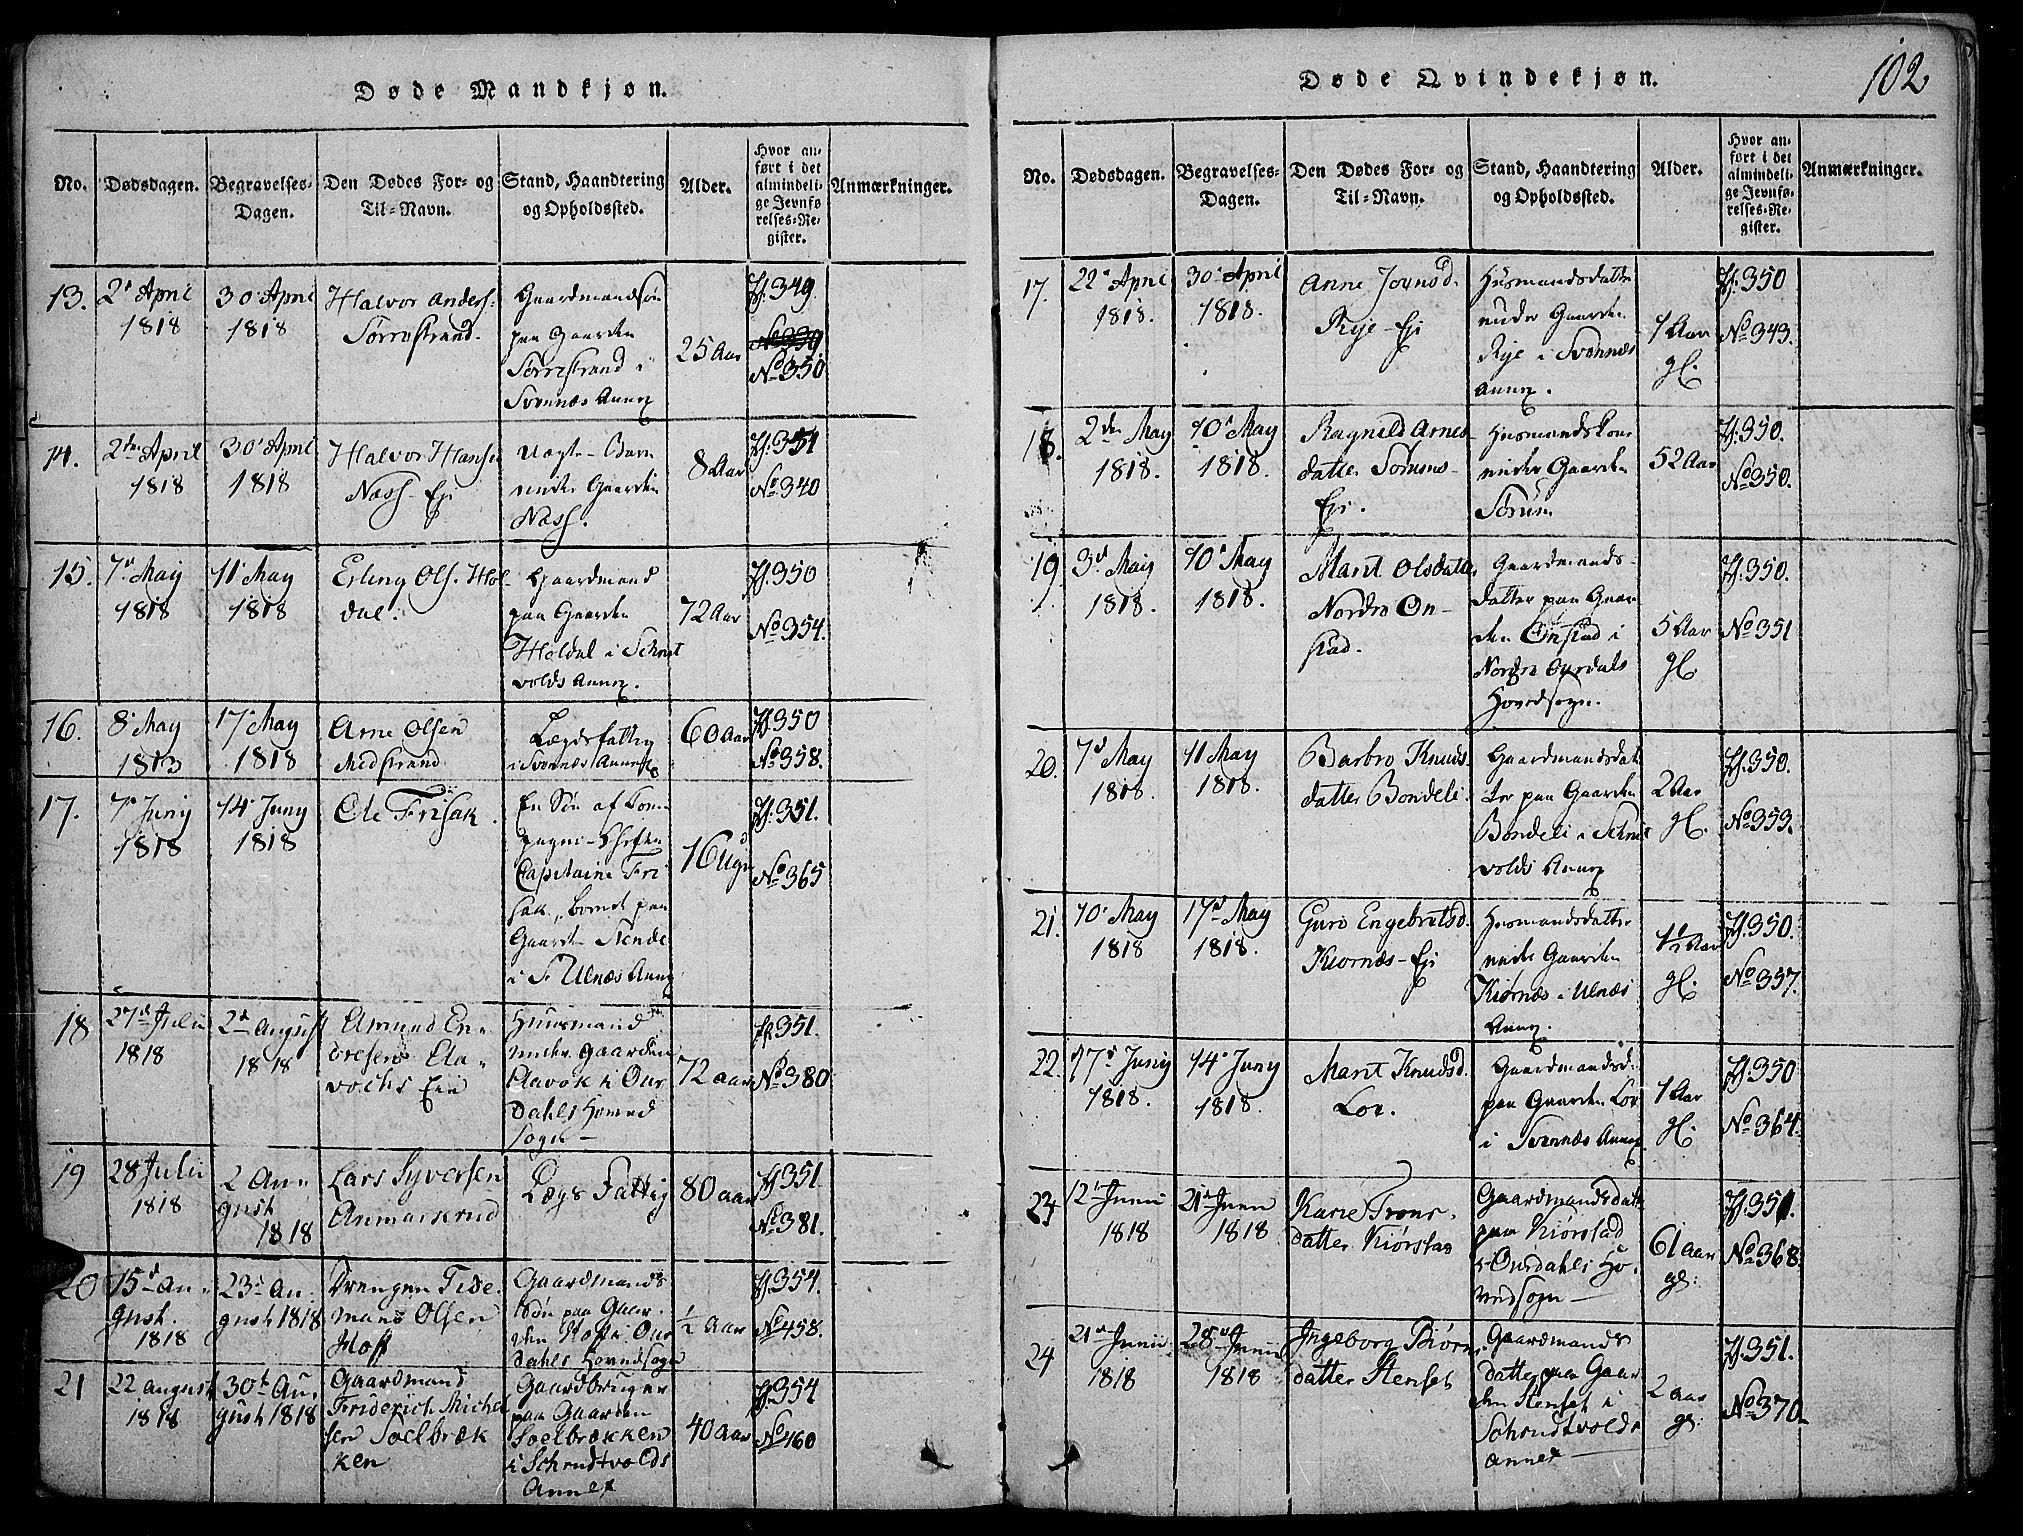 Døde Mandkjøn.
No. Dødsdagen. Begravelses-Dagen. Den Dødes For- og Til-Navn. Stand, Haandtering og Opholdssted. Alder. Hvor anført i det almindelige Jevnførelses-Register. Anmærkninger.
13. 2d April 1818 30 April 1818 Halvor Anders: Sørrestrand. Gaardmandsøn paa Gaarden Sørrestrand i Svennæs Annex 25 Aar Fl: 349 No 350
14. 2den April 1818 30 April 1818 Halvor Hansen Næss-Eje Under Gaarden Næss. 8 Aar Fl: 351 No 340
15. 7d May 1818 11 May 1818 Erling Ols. Høldal. Gaardmand paa Gaarden Høldal i Schrutvolds Annex. 72 Aar Fl: 350 No 354.
16. 8 May 1813 17 May 1818 Arne Olsen Midstrand Lægdsfattig i Svennæs Annex 60 Aar Fl: 350 No 358.
17. 7 Juny 1818 14 Juny 1818 Ole Frisak. En Søn af Compagnie-Chefen Capitaine Frisak, boende paa Gaard Stende i Ulnæs Annex 16 Uger Fl: 351. No 365
18 27d Julii 1818 2d August 1818 Amund Endresens Elavochs Eie Huusmand under Gaarden Elavok i Ourdahls Hovedsogn 72 aar Fl: 351. No 380
19 28 Julii 1818 2 August 1818 Lars Syversen Anmarkrud Lægs Fattig 80 aar Fl: 351. No 381.
20 15d August. 1818 23d August 1818 Drengen Tidemans Olsen Hoff Gaardmands Søn paa Gaarden Hoff i Ourdahls Hovedsogn 1/2 aar Fl: 354. No 458.
21 22 august 1818 30te August 1818 Gaardmand Friderich Michelsen Soelbrækken Gaardbruger paa Gaarden Soelbrækken i Schrudtvolds Annex 40 aar Fl: 354 No 460
Døde Qvindekjøn.
102
No. Dødsdagen. Begravelses-Dagen. Den Dødes For- og Til-Navn. Stand, Haandtering og Opholdssted. Alder. Hvor anført i det almindelige Jevnførelses-Register. Anmærkninger.
17. 22 April 1818. 30 April 1818. Anne Jørnsd. Rye-Eje Husmandsdatter under Gaarden Rye i Svennæs Annex. 1 Aar gl. Fl: 350 No 343.
18. 2den May 1818. 10 May 1818. Ragnild Arnesdatter Sørums-Eje. Husmandskone under Gaarden Sørum 52 Aar Fl: 350. No 350.
19. 3d May 1818. 10 May 1818. Marit Olsdatter Nordre Onstad. Gaardmandsdatter paa Gaarden Onstad i Nordre Ourdals Hovedsogn. 5 Aar gl. Fl: 350. No 351
20. 7d May 1818. 11 May 1818. Barbro Knudsdatter Bondeli. Gaardmandsdatter paa Gaarden Bondeli i Schrutvolds Annex 2 Aar gl. Fl: 350. No 353.
21. 10 May 1818 17d May 1818. Guro Engebretsd. Kiørnæs-Eje Husmandsdatter under Gaarden Kiørnæs i Ulnæs Annex. 1 1/2 Aar gl. Fl: 350. No 357.
22. 7d Juny 1818. 14 Juny 1818. Marit Knudsd. Lox. Gaardmandsd. paa Gaarden Lox i Svennæs Annex 1 Aar gl. Fl: 350 No 364.
23 12 Junii 1818 21d Junii 1818 Karie Tronsdatter Kiørstad Gaardmandsdatter paa Kiørstad i Ourdahls Hovedsogn 61 aar gl: Fl: 351. No 368.
24 21d Junii 1818 28d Junii 1818 Ingeborg Biørnsdatter Stenset Gaardmands datter paa Gaarden Stenset i Schrudtvolds annex 2 aar gl: Fl: 351. No 370